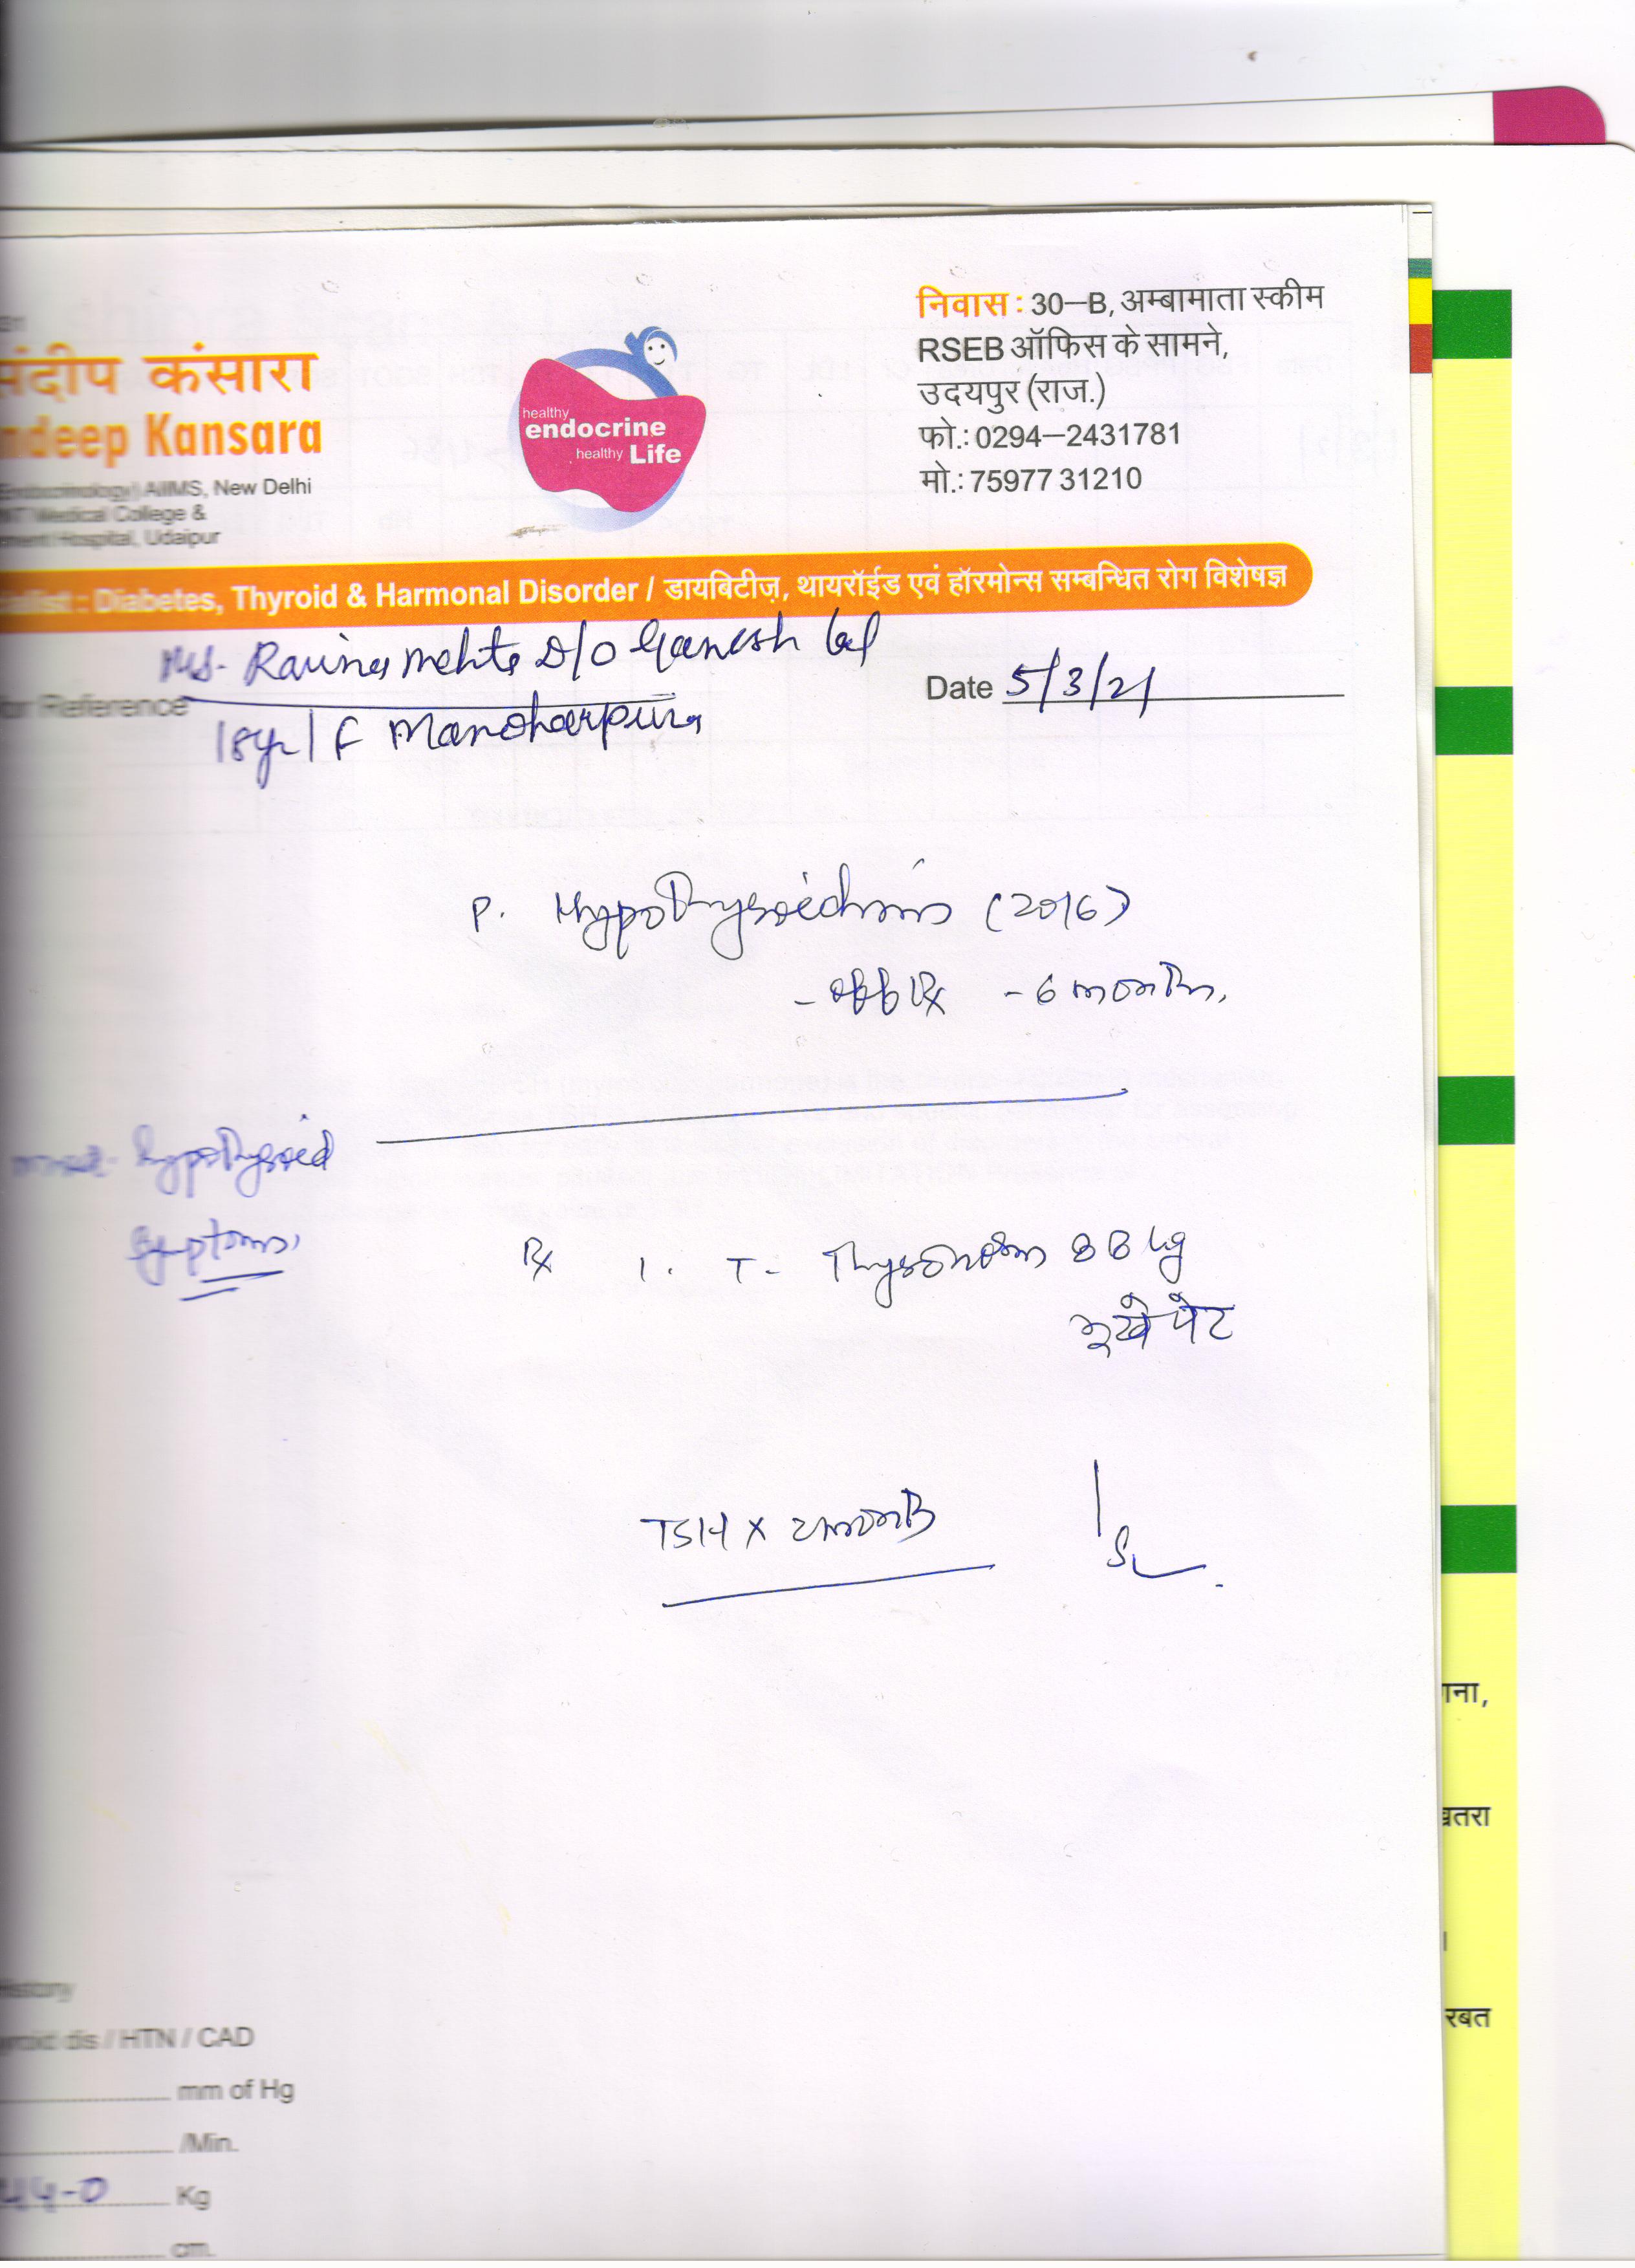 निवास : 30–B, अम्बामाता स्कीम
RSEB ऑफिस के सामने,
उदयपुर (राज.)
फो.: 0294–2431781
मो.: 75977 31210
संदीप कंसारा
ndeep Kansara
(Endocrinology) AIIMS, New Delhi
Medical College &
Hospital, Udaipur
healthy
endocrine
healthy Life
alist : Diabetes, Thyroid & Harmonal Disorder / डायबिटीज़, थायरॉईड एवं हॉरमोन्स सम्बन्धित रोग विशेषज्ञ
Ms. Ravina Mehta D/O Ganesh lal
or Reference
Date 5/3/21
18yr/F Manoharpura
P. Hypothyroidism (2016)
- off Rx - 6 months.
hypothyroid
symptoms,
Rx 1. T- Thyronorm 88 ug
भूखे पेट
TSH x 2 month
गना,
खतरा
रबत
History
dis / HTN / CAD
mm of Hg
/Min.
44-0 Kg
cm.